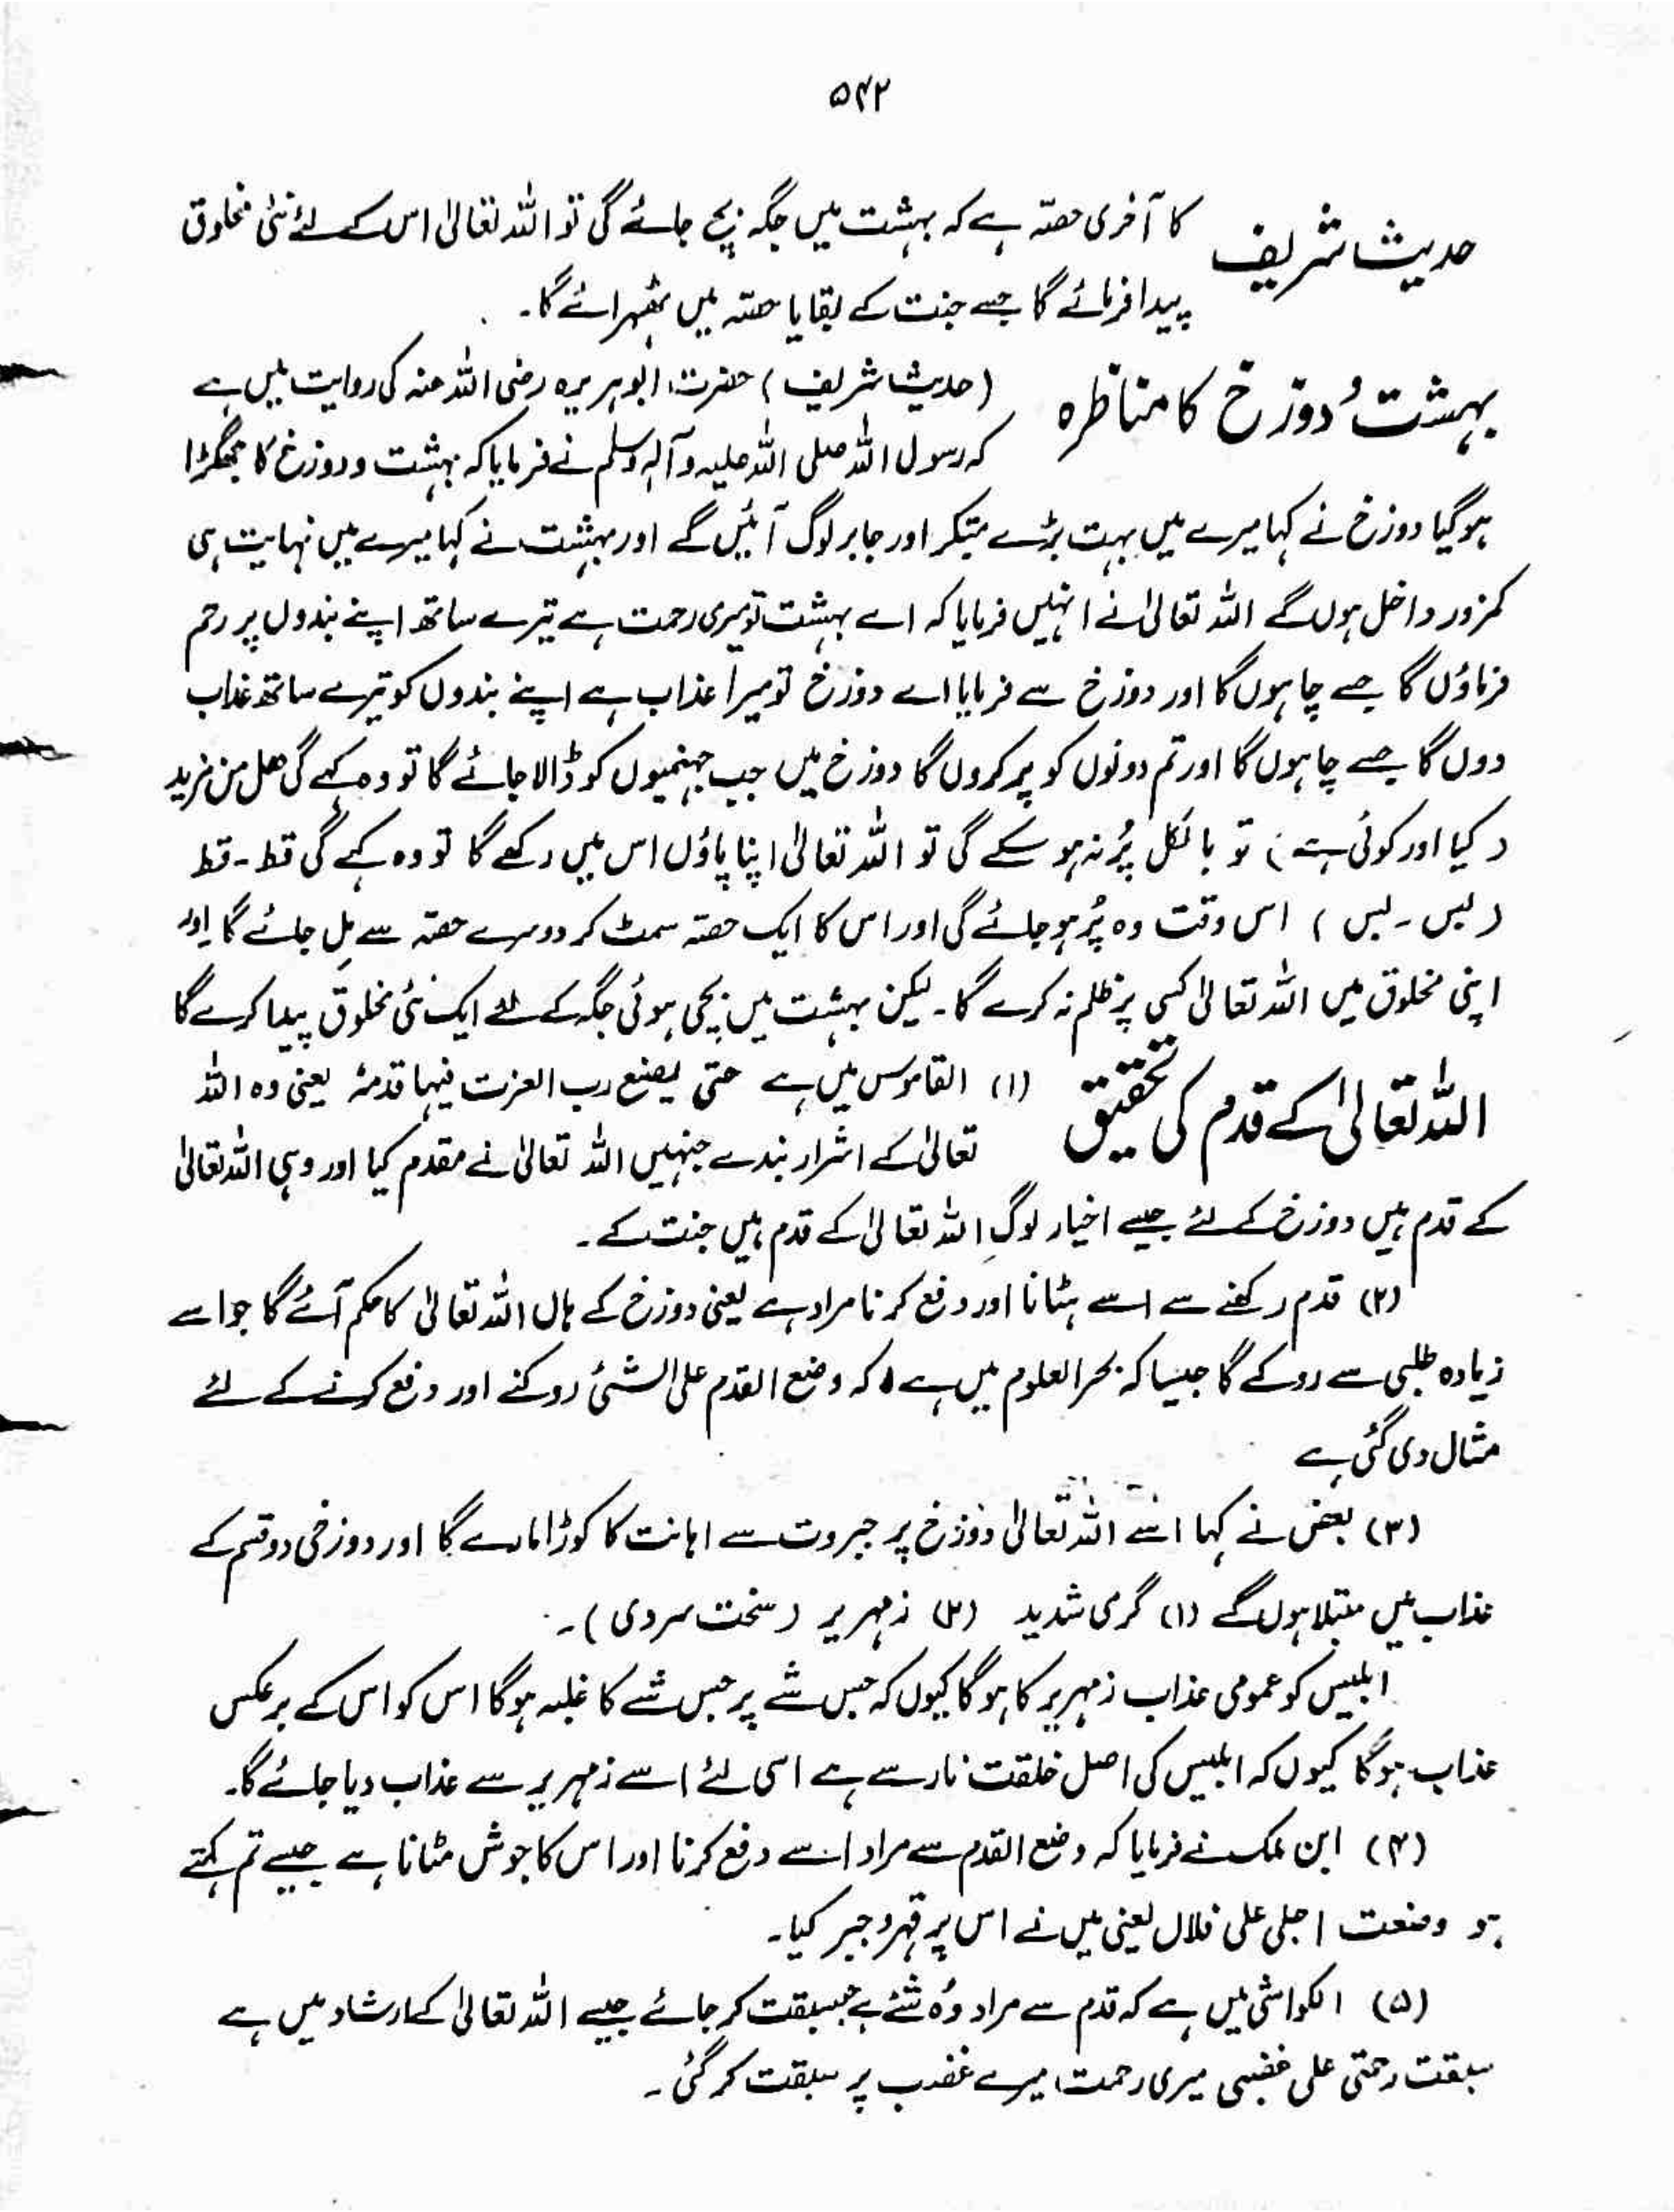 ۵۴۲
حدیث شریف کا آخری حصّہ ہے کہ بہشت میں جگہ بچ جائے گی تو اللہ تعالیٰ اس کے لئے نئی مخلوق
پیدا فرمائے گا جسے جنت کے بقایا حصّہ میں ٹھہرائے گا۔
بہشت و دوزخ کا مناظرہ (حدیث شریف) حضرت ابوہریرہ رضی اللہ عنہ کی روایت میں ہے
کہ رسول اللہ صلی اللہ علیہ وآلہ وسلم نے فرمایا کہ بہشت و دوزخ کا جھگڑا
ہوگیا دوزخ نے کہا میرے میں بہت بڑے متبکر اور جابر لوگ آئیں گے اور بہشت نے کہا میرے میں نہایت ہی
کمزور داخل ہوں گے اللہ تعالیٰ نے انہیں فرمایا کہ اے بہشت تو میری رحمت ہے تیرے ساتھ اپنے بندوں پر رحم
فرماؤں گا جسے چاہوں گا اور دوزخ سے فرمایا اے دوزخ تو میرا عذاب ہے اپنے بندوں کو تیرے ساتھ عذاب
دوں گا جسے چاہوں گا اور تم دونوں کو پر کروں گا دوزخ میں جب جہنمیوں کو ڈالا جائے گا تو وہ کہے گی ھل من مزید
(کیا اور کوئی ہے) تو بالکل پُر نہ ہو سکے گی تو اللہ تعالیٰ اپنا پاؤں اس میں رکھے گا تو وہ کہے گی قط - قط
(بس - بس) اس وقت وہ پُر ہوجائے گی اور اس کا ایک حصّہ سمٹ کر دوسرے حصّہ سے مِل جائے گا اور
اپنی مخلوق میں اللہ تعالیٰ کسی پر ظلم نہ کرے گا۔ لیکن بہشت میں بچی ہوئی جگہ کے لئے ایک نئی مخلوق پیدا کرے گا
اللہ تعالیٰ کے قدم کی تحقیق (۱) القاموس میں ہے حتی یضع رب العزت فیہا قدمہٗ یعنی وہ اللہ
تعالیٰ کے اشرار بندے جنہیں اللہ تعالیٰ نے مقدم کیا اور وہی اللہ تعالیٰ
کے قدم ہیں دوزخ کے لئے جیسے اخیار لوگ اللہ تعالیٰ کے قدم ہیں جنت کے۔
(۲) قدم رکھنے سے اسے ہٹانا اور دفع کرنا مراد ہے یعنی دوزخ کے ہاں اللہ تعالیٰ کا حکم آئے گا جو اسے
زیادہ طلبی سے روکے گا جیسا کہ بحر العلوم میں ہے کہ وضع القدم علی الشئ روکنے اور دفع کرنے کے لئے
مثال دی گئی ہے
(۳) بعض نے کہا اسے اللہ تعالیٰ دوزخ پر جبروت سے اہانت کا کوڑا مارے گا اور دوزخی دو قسم کے
عذاب میں مبتلا ہوں گے (۱) گرمی شدید (۲) زمہریر (سخت سردی)۔
ابلیس کو عمومی عذاب زمہریر کا ہوگا کیوں کہ جس شے پر جس شے کا غلبہ ہوگا اس کو اس کے برعکس
عذاب ہوگا کیوں کہ ابلیس کی اصل خلقت نار سے ہے اسی لئے اسے زمہریر سے عذاب دیا جائے گا۔
(۴) ابن ملک نے فرمایا کہ وضع القدم سے مراد اسے دفع کرنا اور اس کا جوش مٹانا ہے جیسے تم کہتے
ہو وضعت اجلی علی فلاں یعنی میں نے اس پر قہر و جبر کیا۔
(۵) الکواشی میں ہے کہ قدم سے مراد وُہ شئے ہے جو سبقت کر جائے جیسے اللہ تعالیٰ کے ارشاد میں ہے
سبقت رحمتی علی غضبی میری رحمت میرے غضب پر سبقت کر گئی۔